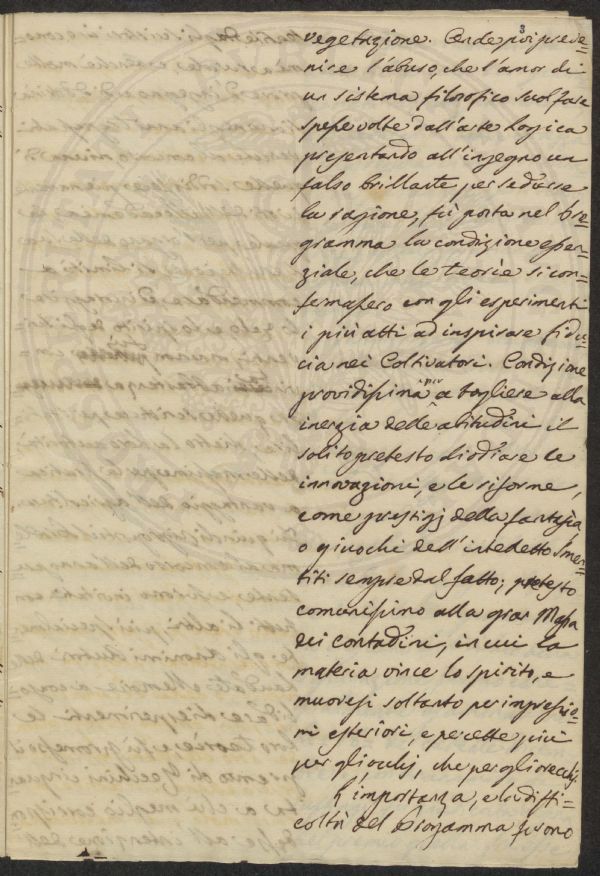 3
vegetazione. Onde poi preve=
nire l'abuso, che l'amor di
un sistema filosofico suol fare
spesse volte dall'arte Loggica
presentando all'ingegno un
falso brillante per sedurre
la ragione, fù posta nel Pro=
gramma la condizione essen=
ziale, che le teorie si con=
fermassero con gli esperimenti
i più atti ad inspirare fidu=
cia nei Coltivatori. Condizione
providissima per a togliere alla
inerzia delle abitudini il
solito pretesto di odiare le
innovazioni, e le riforme,
come prestigj della fantasia,
o giuochi dell'intelletto smen=
titi sempre dal fatto; pretesto
comunissimo alla gran Massa
dei contadini, in cui la
materia vince lo spirito, e
muovesi soltanto per impressio=
ni esteriori, e percette più
per gli occhj, che per gli orecchj.
L'importanza, e la diffi=
coltà del Programma furono